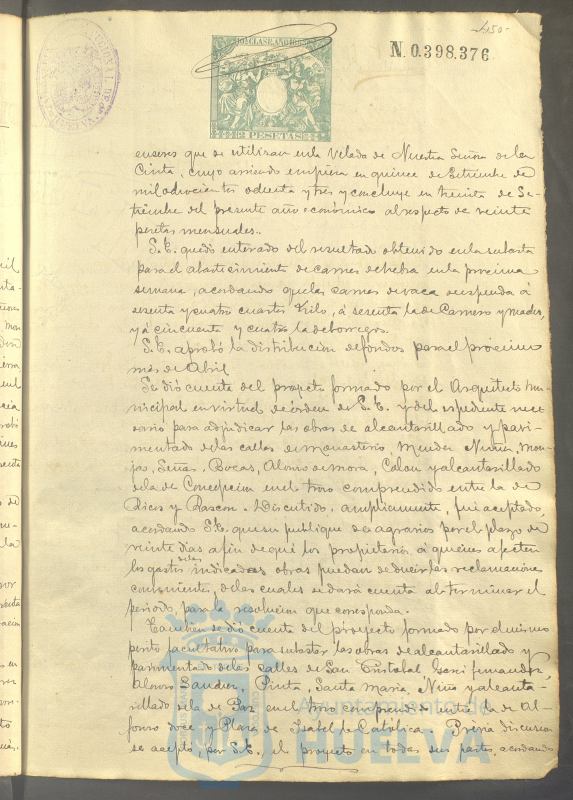 150
N. 0.398.376
10ª CLASE. AÑO
2 PESETAS
enseres que se utilizan en la Velada de Nuestra Señora de la
Cinta, cuyo arriendo empieza en quince de Setiembre de
mil ochocientos ochenta y tres y concluye en treinta de Se-
tiembre del presente año económico al respecto de veinte
pesetas mensuales.
S.E. quedó enterado del resultado obtenido en la subasta
para el abastecimiento de carnes de hebra en la proxima
semana, acordando que las carnes de vaca se espenda á
sesenta y cuatro cuartos kilo, á sesenta la de Carnero y macho,
y á cincuenta y cuatro la de borregos.
S.E. aprobó la distribucion de fondos para el próximo
mes de Abril
Se dió cuenta del proyecto formado por el Arquitecto mu-
nicipal en virtud de órden de S.E. y del espediente nece
sario para adjudicar las obras de alcantarillado y pavi-
mentado de las calles de Monasterio, Mendez Nuñez, Mon-
jas, Señas, Bocas, Alonso de Mora, Colon y alcantarillado
de la de Concepcion en el trozo comprendido entre la de
Ricos y Rascon. Discutido ampliamente, fué aceptado,
acordando S.E. que se publique por el plazo de
veinte dias a fin de que los propietarios á quienes afecten
los gastos de las indicadas obras puedan deducir las reclamaciones
convenientes, de las cuales se dará cuenta al terminar el
período, para la resolucion que corresponda.
Tambien se dió cuenta del proyecto formado por el mismo
perito facultativo para subastar las obras de alcantarillado y
pavimentado de las calles de San Cristobal, Garci fernandez,
Alonso Sanchez, Pinta, Santa Maria, Niña y alcanta-
rillado de la de Paz en el trozo comprendido entre la de Al-
fonso doce y Plaza de Isabel la Católica. Prévia discusion
se aceptó por S.E. el proyecto en todas sus partes, acordando
Ayuntamiento de
HUELVA